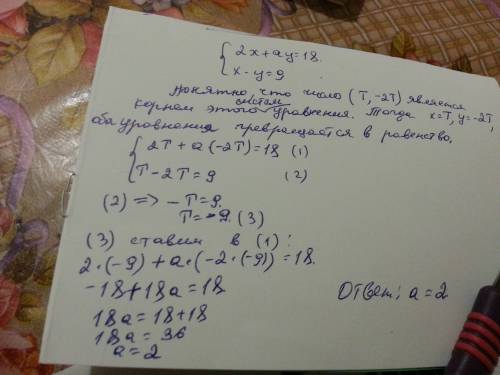 { 2x+ay=18.
x-y=9
понятно, что число (T, -2T) является
корнем этого систем уравнения. Тогда x=T, y=-2T,
оба уравнения превращается в равенство.
{ 2T + a(-2T)=18 (1)
T-2T=9 (2)
(2) => -T=9.
T=-9. (3)
(3) ставим в (1):
2·(-9)+a·(-2·(-9))=18.
-18+18a=18
18a=18+18
18a=36
a=2
Ответ: a=2